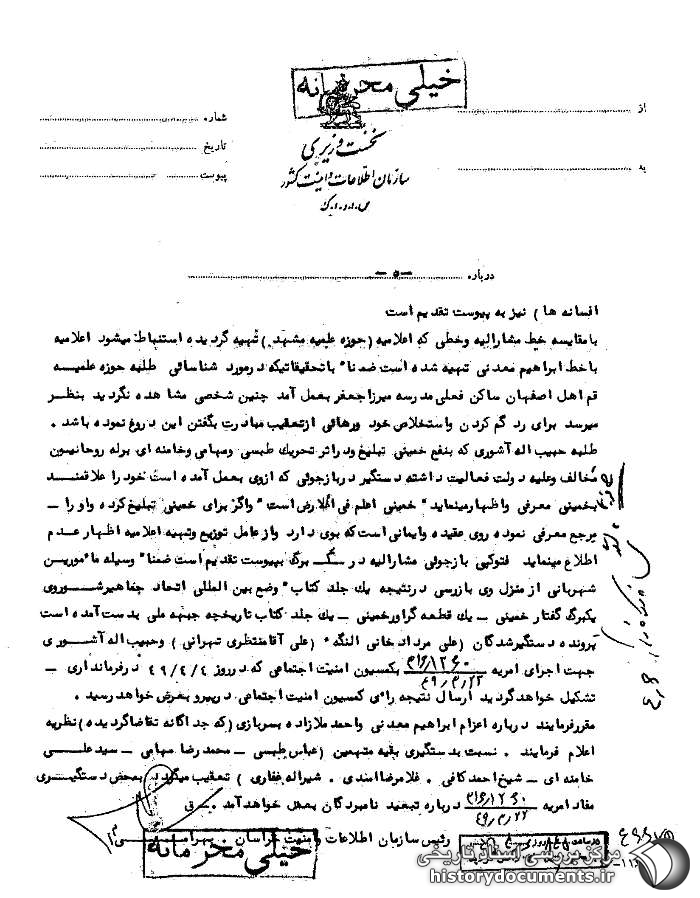 خیلی محرمانه
از
شماره
نخست وزیری
تاریخ
به
سازمان اطلاعات و امنیت کشور
پیوست
س.ا.و.ا.ک
درباره
-۵-
افسانه ها ) نیز به پیوست تقدیم است
بامقایسه خط مشارالیه وخطی که اعلامیه (حوزه علمیه مشهد) تهیه گردیده استنباط میشود اعلامیه
باخط ابراهیم معدنی تهیه شده است ضمنا" باتحقیقاتیکه درمورد شناسائی طلبه حوزه علمیسه
قم اهل اصفهان ساکن فعلی مدرسه میرزاجعفر بعمل آمد چنین شخصی مشاهده نگردید بنظر
میرسد برای رد گم کردن واستخلاص خود ورهائی ازتعقیب مبادرت بگفتن این دروغ نموده باشد .
طلبه حبیب اله آشوری که بنفع خمینی تبلیغ ودراثر تحریک طبسی ومهامی وخامنه ای برله روحانیون
مخالف وعلیه دولت فعالیت داشته دستگیر دربازجوئی که ازوی بعمل آمده است خود را علاقمند
بخمینی معرفی واظهارمینماید" خمینی اعلم فی الارض است" واگر برای خمینی تبلیغ کرده واو را ــ
مرجع معرفی نموده روی عقیده وایمانی است که بوی دارد وازعامل توزیع وتهیه اعلامیه اظهار عدم
اطلاع مینماید فتوکپی بازجوئی مشارالیه در برگ بپیوست تقدیم است ضمنا" وسیله مأمورین
شهربانی از منزل وی بازرسی درنتیجه یک جلد کتاب" وضع بین المللی اتحاد جماهیرشوروی
یکبرگ گفتار خمینی ــ یک قطعه گراورخمینی ــ یک جلد کتاب تاریخچه جبهه ملی بدست آمده است
پرونده دستگیرشدگان (علی مرداد خانی النگه" (علی آقامنتظری تهرانی ) وحبیب اله آشوری
جهت اجرای امریه ۳۱۶/۱۲۶۰ ۴۹/۳/۲۲ بکمسیون امنیت اجتماعی که درروز ۴۹/۴/۴ درفرمانداری ــ
تشکیل خواهدگردید ارسال نتیجه رای کمسیون امنیت اجتماعی درپیرو بعرض خواهد رسید .
مقررفرمایند درباره اعزام ابراهیم معدنی واحمد ملازاده بسربازی (که جداگانه تقاضاگردیده) نظریه
اعلام فرمایند . نسبت بدستگیری بقیه متهمین (عباس طبسی ــ محمد رضا مهامی ــ سیدعلی
خامنه ای ــ شیخ احمد کافی . غلامرضا اسدی . شیراله غفاری ) تعقیب میگردد بمحض دستگیری
مفاد امریه ۳۱۶/۱۲۶۰ ۴۹/۳/۲۲ درباره تبعید نامبردگان بعمل خواهد آمد . ق
رئیس سازمان اطلاعات و امنیت خراسان . بهرامی
خیلی محرمانه
مرکز بررسی اسناد تاریخی
historydocuments.ir